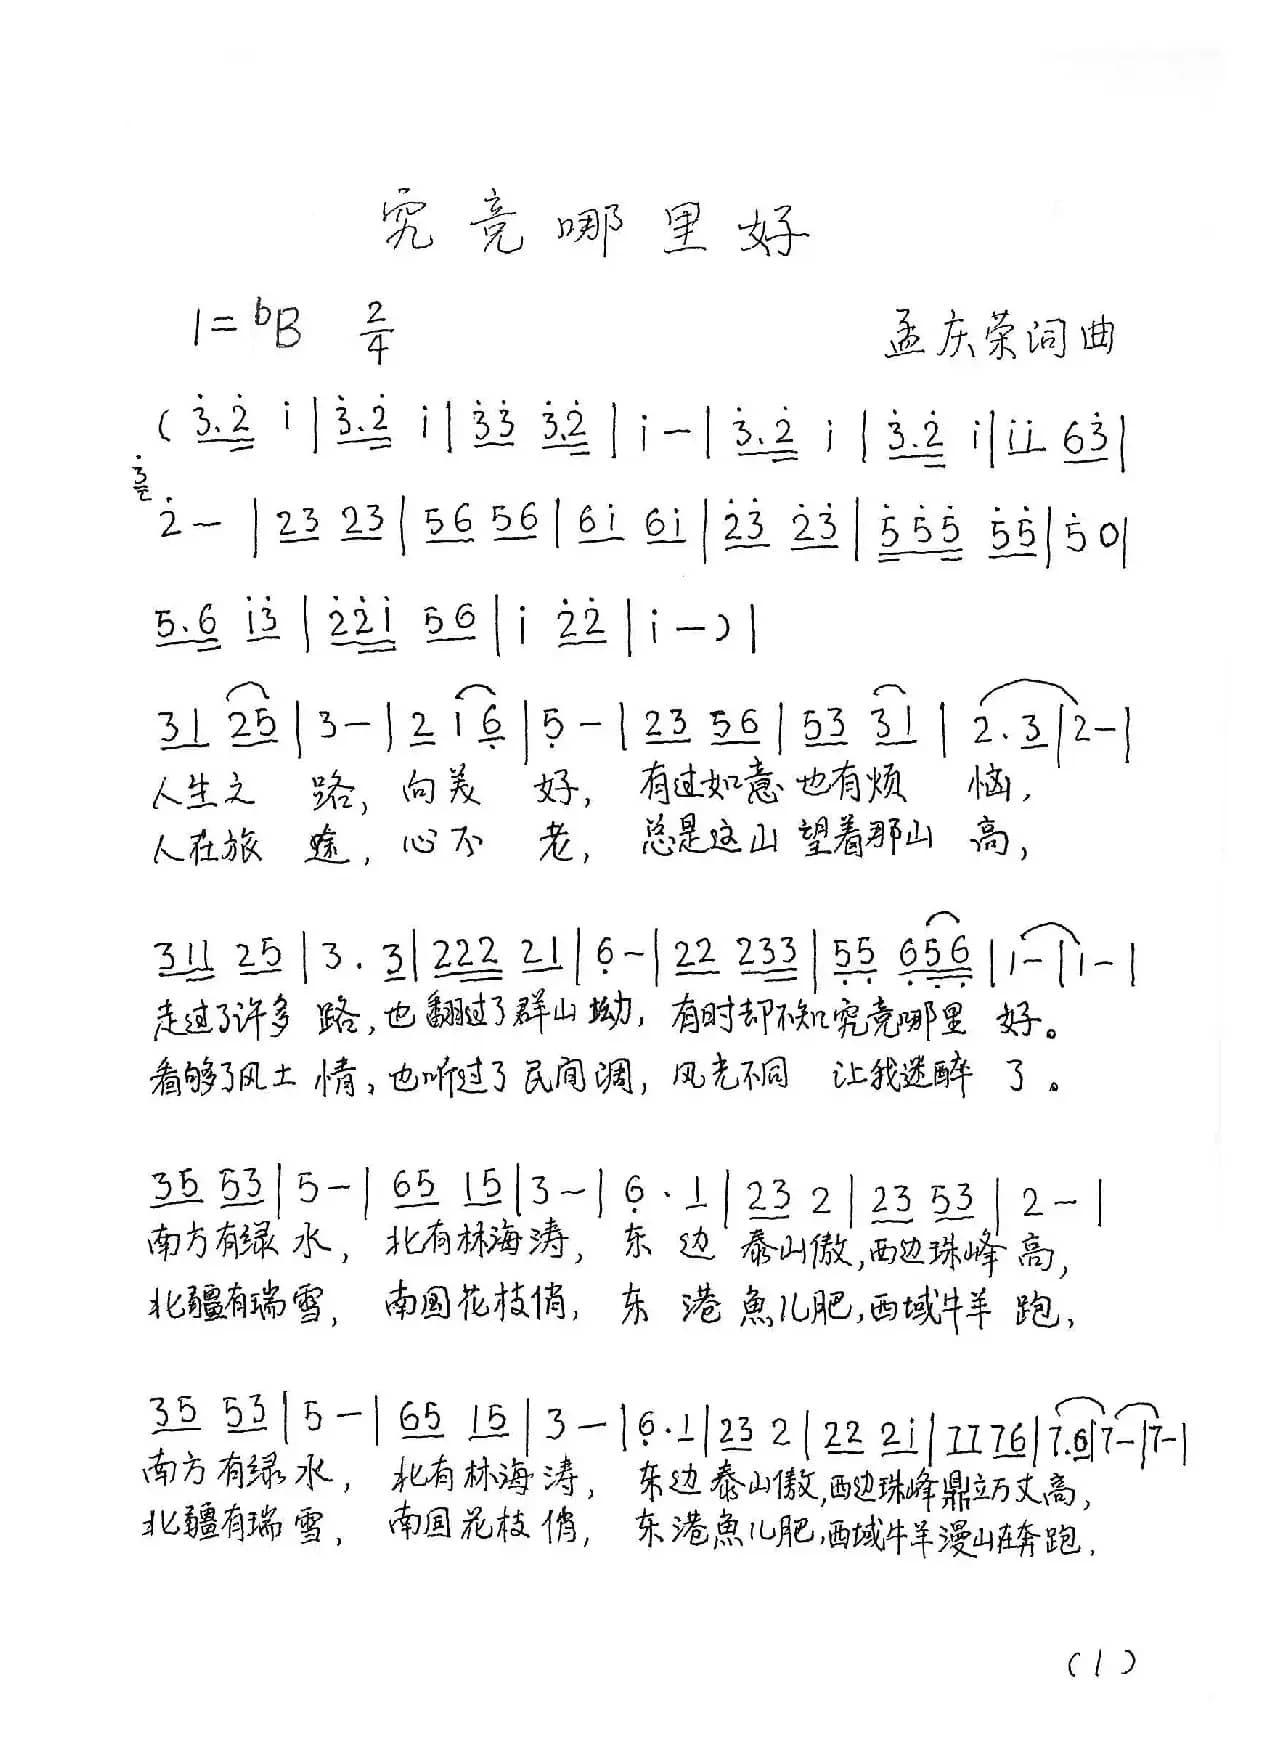 究竟哪里好
1=ᵇB 2/4 孟庆荣词曲
(3̇.2̇ i|3̇.2̇ i|3̇3̇ 3̇.2̇|i-|3̇.2̇ i|3̇.2̇ i|ii 63̇|
3̇
2̇-|23 23|56 56|6i 6i|2̇3̇ 2̇3̇|5̇5̇5̇ 5̇5̇|5̇0|
5.6 i3̇|2̇2̇i 56|i 2̇2̇|i-)|
31 25|3-|2 16̣|5̣-|23 56|53 31|2.3|2-|
人生之路,向美好,有过如意也有烦恼,
人在旅途,心不老,总是这山望着那山高,
311 25|3.3|222 21|6̣-|22 233|5̣5̣ 6̣5̣6̣|1-|1-|
走过了许多路,也翻过了群山坳,有时却不知究竟哪里好。
看够了风土情,也听过了民间调,风光不同 让我迷醉了。
35 53|5-|65 15|3-|6̣.1|23 2|23 53|2-|
南方有绿水,北有林海涛,东边泰山傲,西边珠峰高,
北疆有瑞雪,南国花枝俏,东港魚儿肥,西域牛羊跑,
35 53|5-|65 15|3-|6̣.1|23 2|22 2i|77 76|7.6|7-|7-|
南方有绿水,北有林海涛,东边泰山傲,西边珠峰鼎立万丈高,
北疆有瑞雪,南国花枝俏,东港魚儿肥,西域牛羊漫山在奔跑.
(1)